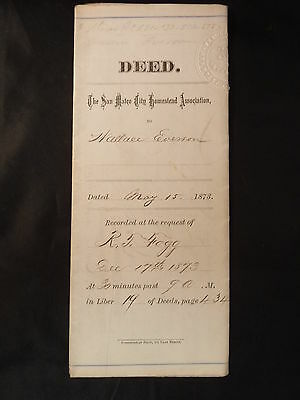 DEED.
The San Mateo City Homestead Association,
to
Wallace Everson
Dated May 15. 1873.
Recorded at the request of
R. J. Fogg
Dec 17th 1873
At 30 minutes past 9 A. M.
in Liber 19 of Deeds, page 434